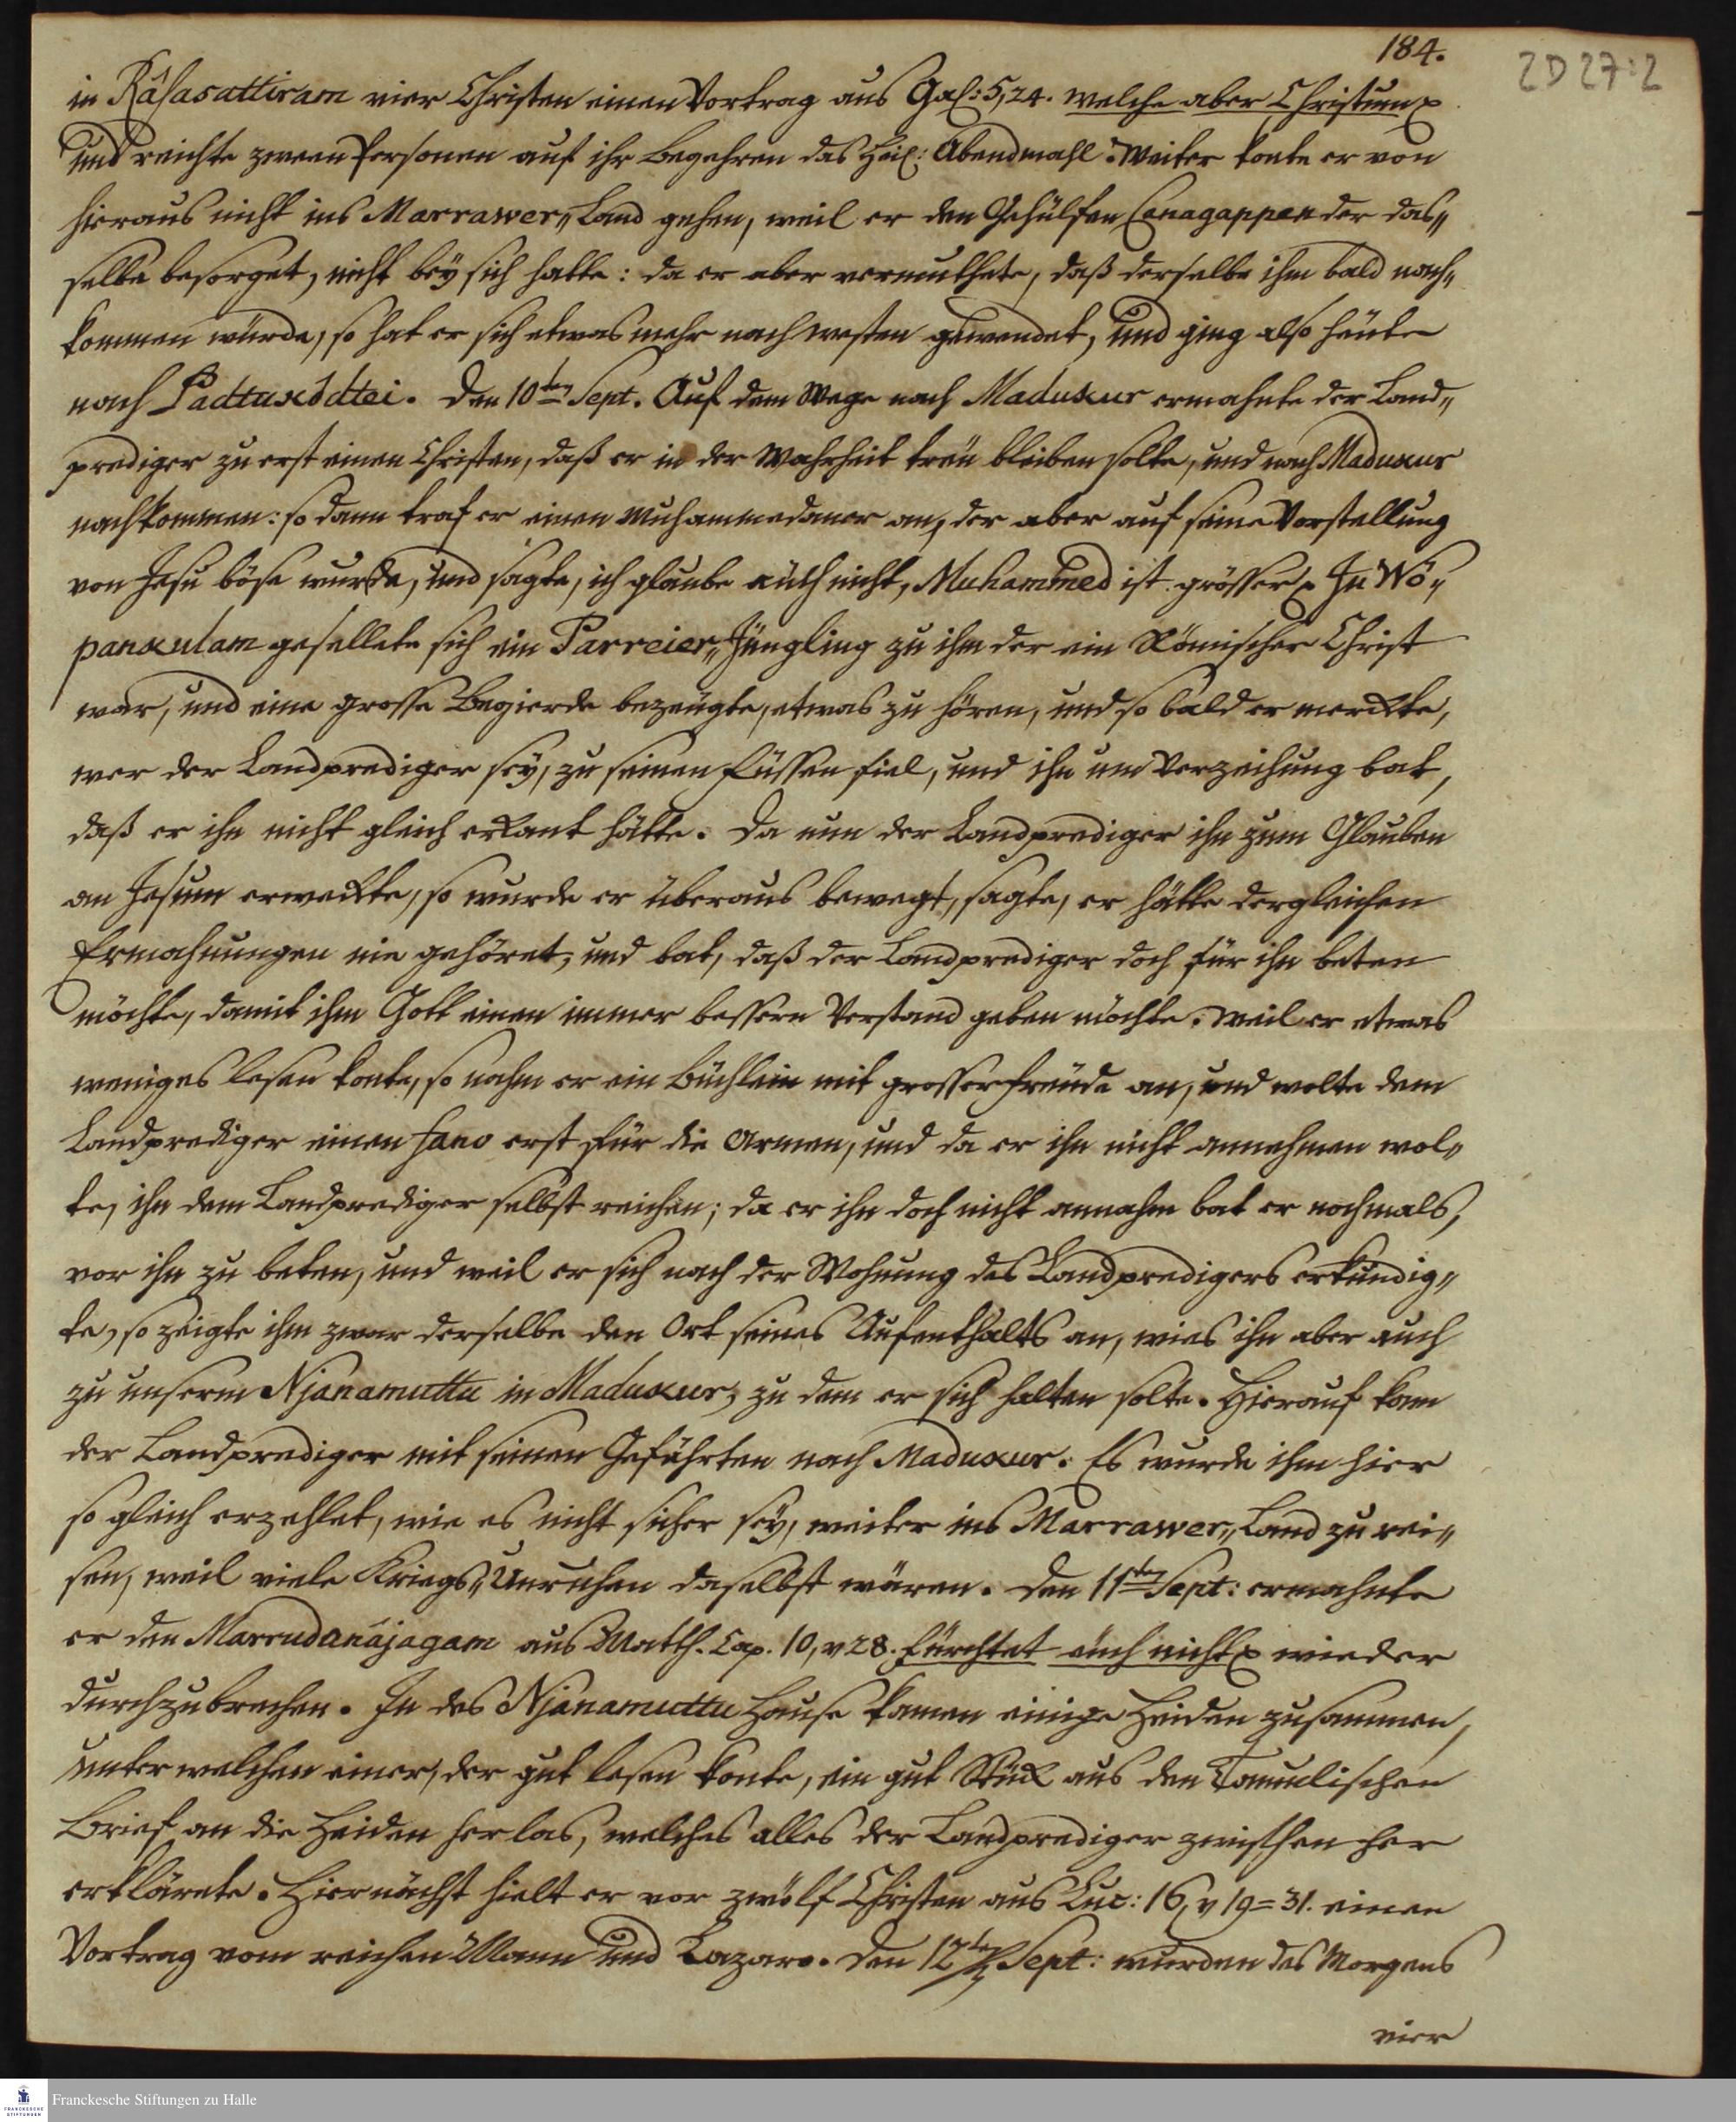 184.
2D27:2
in Râsasattiram vier Christen einen Vortrag aus Gal: 5,24. welche aber Christum
und reichte zween Personen auf ihr Begehren das Heil: Abendmahl. Weiter konte er von
hieraus nicht ins Marrawer„Land gehen, weil er den Gehülfen Canagappen der das„
selbe besorget, nicht bey sich hatte: da er aber vermuthete, daß derselbe ihm bald nach„
kommen würde, so hat er sich etwas mehr nach westen gewendet, und ging also heute
nach Padtuxódtei. Den 10ten Sept. Auf dem Wege nach Maduxur ermahnte der Land„
prediger zu erst einen Christen, daß er in der Wahrheit treu bleiben solte, und nach Maduxur
nachkommen: so dann traf er einen Muhammedaner an, der aber auf seine Vorstellung
von Jesu böse wurde, und sagte, ich glaube auch nicht, Muhammed ist grösser In Wö„
panxulam gesellete sich ein Parreier„Jüngling zu ihm der ein Römischer Christ
war, und eine grosse Begierde bezeugte, etwas zu hören, und so bald er merckte,
wer der Landprediger sey, zu seinen Füssen fiel, und ihn um Verzeihung bat,
daß er ihn nicht gleich erkant hätte. Da nun der Landprediger ihn zum Glauben
an Jesum erweckte, so wurde er überaus bewegt, sagte, er hätte dergleichen
Ermahnungen nie gehöret, und bat, daß der Landprediger doch für ihn beten
möchte, damit ihm Gott einen immer bessern Verstand geben möchte. Weil er etwas
weniges lesen konte, so nahm er ein Büchlein mit grosser Freude an, und wolte dem
Landprediger einen Fano erst für die Armen, und da er ihn nicht annehmen wol„
te, ihn dem Landprediger selbst reichen; da er ihn doch nicht annahm bat er nochmals,
vor ihn zu beten, und weil er sich nach der Wohnung des Landpredigers erkundig„
te, so zeigte ihm zwar derselbe den Ort seines Aufenthalts an, wies ihn aber auch
zu unserm Njanamuttu in Maduxur, zu dem er sich halten solte. Hierauf kam
der Landprediger mit seinen Gefährten nach Maduxur. Es wurde ihm hier
so gleich erzehlet, wie es nicht sicher sey, weiter ins Marrawer„Land zu rei„
sen, weil viele Kriegs„Unruhen daselbst wären. Den 11ten Sept: ermahnte
er den Marrudanájagam aus Matth. Cap. 10, v 28. fürchtet euch nicht wieder
durchzubrechen. In des Njanamuttu Hause kamen einige Heiden zusammen,
unter welchen einer, der gut lesen konte, ein gut Stück aus den Tamulischen
Brief an die Heiden her las, welches alles der Landprediger zwischen her
erklärete. Hiernächst hielt er vor zwölf Christen aus Luc: 16, v 19=31. einen
Vortrag vom reichen Mann und Lazaro. Den 12ten Sept: wurden des Morgens
vier
Franckesche Stiftungen zu Halle
FRANCKESCHE
STIFTUNGEN